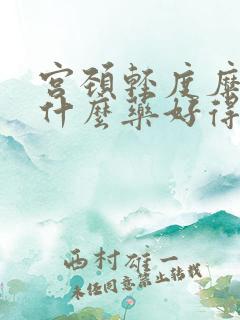 宫颈轻度糜
什麽药好得
西村雄一
未经同意禁止转载